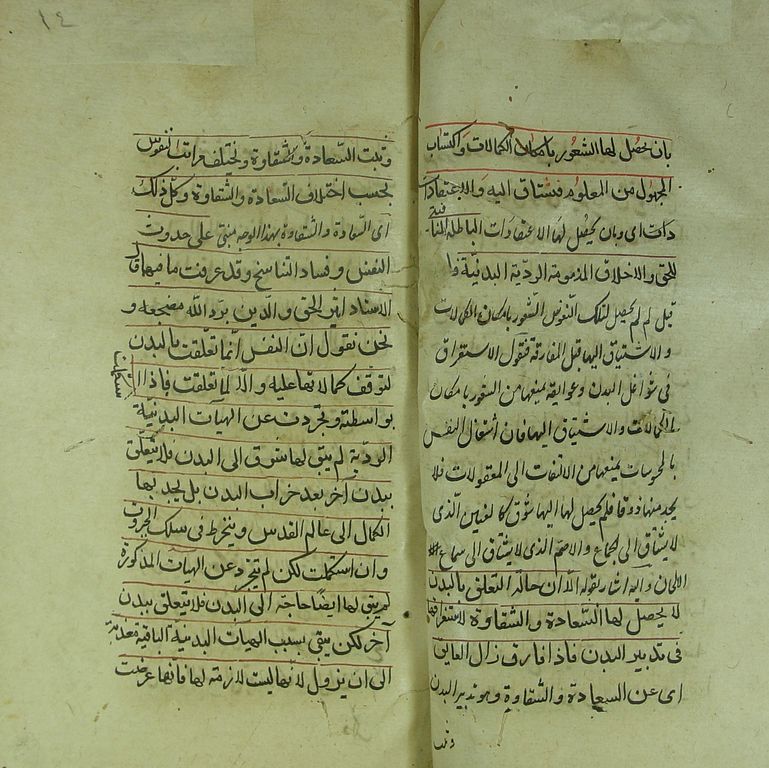 بان يحصل لها الشعور بامكان الكمالات واكتساب
المجهول من المعلوم فتشتاق اليه والاعتقادات
دات اى وبان يحصل لها الاعتقادات الباطلة المنا
فية
للحق والاخلاق المذمومة الردية البدنية فا
قيل لم لم يحصل لتلك النفوس الشعور بامكان الكمالات
والاشتياق اليها قبل المفارقة فنقول الاستغراق
فى شواغل البدن وعوايقه يمنعها من الشعور بامكان
الكمالات والاشتياق اليها فان اشتغال النفس
بالمحسوسات يمنعها من الالتفات الى المعقولات فلا
يجد منها ذوقا فلم يحصل لها اليها شوق كالعنين الذى
لا يشتاق الى الجماع والاصم الذى لا يشتاق الى سماع
الالحان واليه اشار بقوله الا ان حالة التعلق بالبدن
لا يحصل لها السعادة والشقاوة لاستغراقها
فى تدبير البدن فاذا فارق زال العايق
اى عن السعادة والشقاوة وهو تدبير البدن
وثبت
١٢
وثبت السعادة والشقاوة ويختلف مراتب النفوس
بحسب اختلاف السعادة والشقاوة وكل ذلك
اى السعادة والشقاوة بهذا الوجه مبنى على حدوث
النفس وفساد التناسخ وقد عرفت ما فيهما قال
الاستاد اثير الحق والدين برد الله مضجعه و
نحن نقول ان النفس انما تعلقت بالبدن
لتوقف كمالاتها عليه والا لما تعلقت فاذا ا
ستكملت
بواسطته وتجردت عن الهيآت البدنية
الردية لم يبق لها شوق الى البدن فلا يتعلق
ببدن آخر بعد خراب البدن بل يجد بها
الكمال الى عالم القدس وينخرط فى سلك الجبروت
وان استكملت لكن لم يتجرد عن الهيآت المذكورة
لم يبق لها ايضا حاجة الى البدن فلا يتعلق ببدن
آخر لكن يبقى بسبب الهيآت البدنية الباقية معذبة
الى ان يزول لانها ليست لازمة لها فانها عرضت